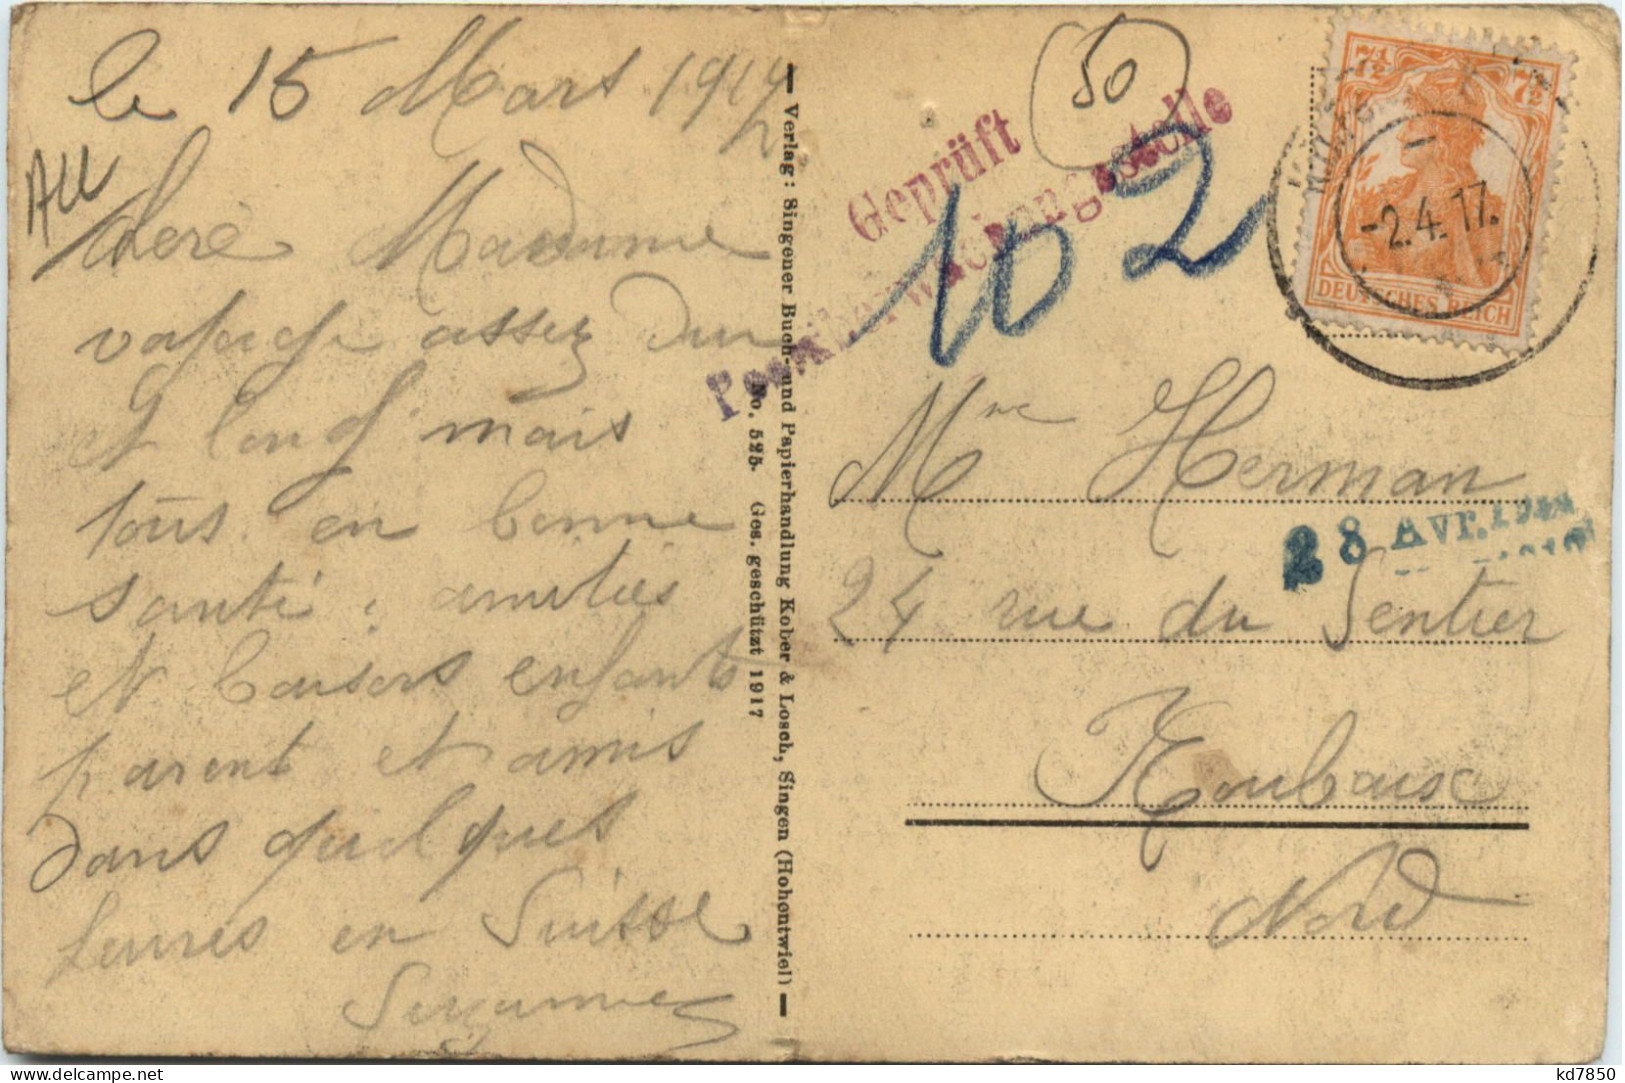 le 15 Mars 1917
All
Chère Madame
voyage assez dur
et long mais
tous en bonne
santé. amitiés
et baisers enfants
parent et amis
dans quelques
heures en Suisse
Suzanne
— Verlag: Singener Buch- und Papierhandlung Kober & Losch, Singen (Hohentwiel) —
No. 525. Ges. geschützt 1917
50
Geprüft
Postüberwachungsstelle
102
7½ 7½
DEUTSCHES REICH
-2.4.17.
Mme Herman
28 Avr.
24 rue du Sentier
Roubaix
Nord
kd7850